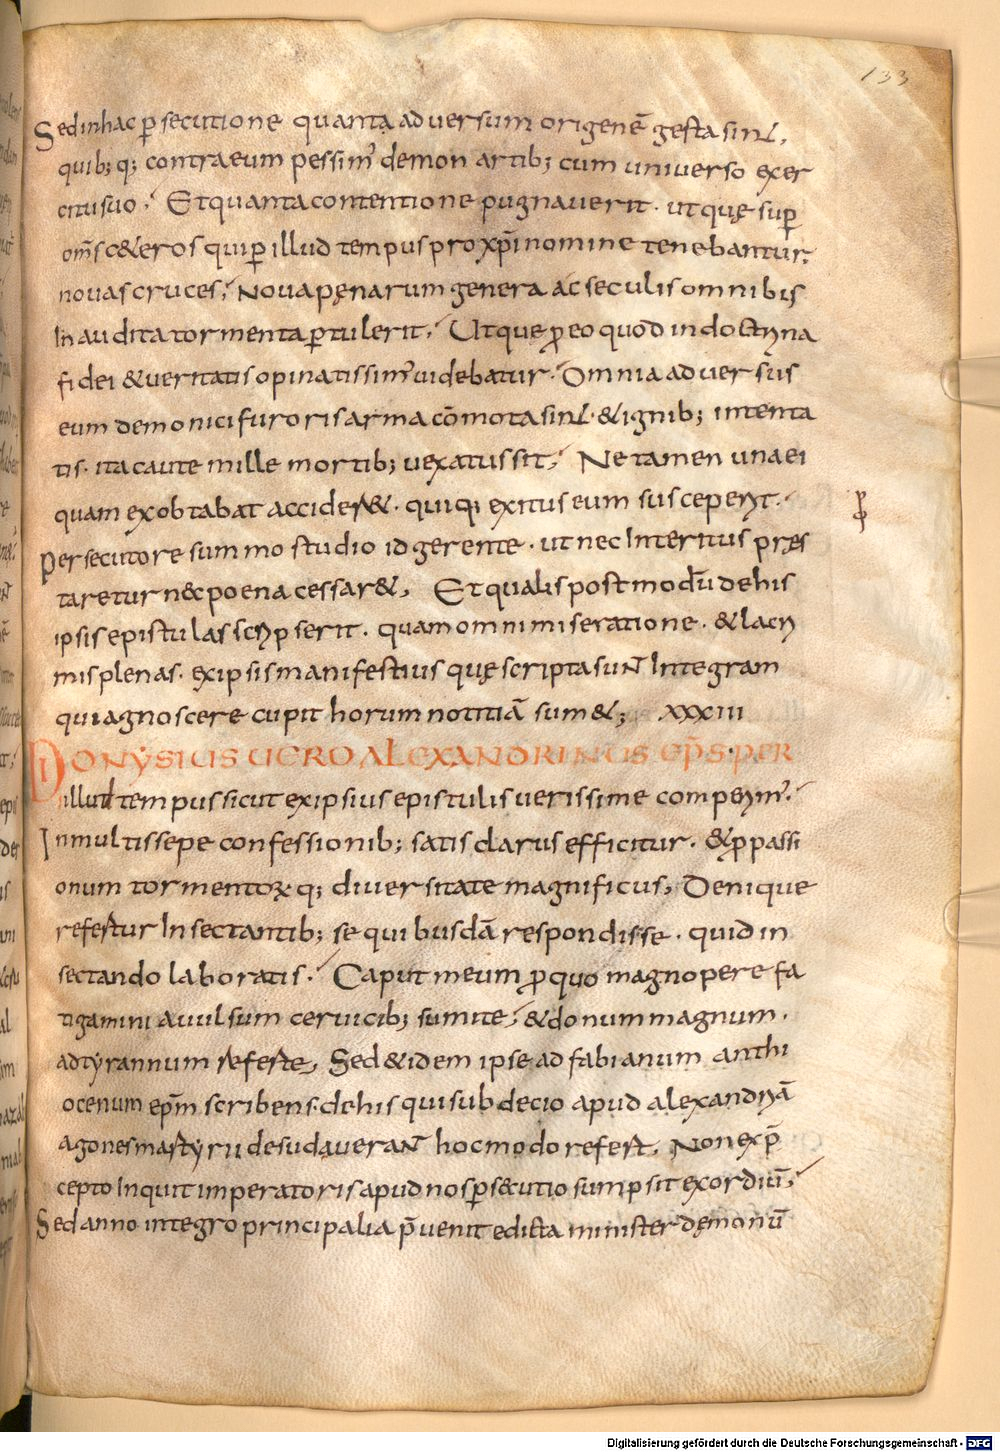 133
Sed in hac ꝑsecutione quanta aduersum origenē gesta sint,
quib; q; contra eum pessim' demon artib; cum uniuerso exer
citu suo; Et quanta contentione pugnauerit · ut quę suꝑ
om̄s c&eros qui ꝑ illud tempus pro xp̄i nomine tenebantur,
nouas cruces, Noua pęnarum genera ac seculis omnibis
Inaudita tormenta ꝑtulerit; Utque ꝓ eo quod in doctryna
fidei & ueritatis opinatissim' uidebatur · Omnia aduersus
eum demonici furoris arma cōmota sint · & ignib; intenta
tis · ita caute mille mortib; uexatus sit; Ne tamen una ei
quam exobtabat accider& · qui q; exitus eum susceperyt ·
ꝓ
Persecutore summo studio id gerente · ut nec Interitus pręs
taretur nec poena cessar&, Et qualis postmodū de his
ipsis epistulas scrypserit · quam omni miseratione · & lacry
mis plenas · ex ipsis manifestius quę scripta sunt Integram
qui agnoscere cupit horum notitiā sum&; XXXIII
DIONYSIUS UERO ALEXANDRINUS EP̄S · PER
illud tempus sicut ex ipsius epistulis uerissime comperym'.
In multis sepe confessionib; satis clarus efficitur · & ꝓ passi
onum tormentoꝝ q; diuersitate magnificus, Denique
refertur Insectantib; se quibusdā respondisse · quid in
sectando laboratis · Caput meum ꝓ quo magnopere fa
tigamini auulsum ceruicib; sumite, & donum magnum ·
ad tyrannum referte, Sed & idem ipse ad fabianum anthi
ocenum ep̄m scribens · de his qui sub decio apud alexandryā
agones martyrii desudauerant hoc modo refert, Non ex p̄
cepto Inquit imperatoris apud nos ꝑsecutio sumpsit exordiū;
Sed anno integro principalia p̄uenit edicta minister dęmonū
Digitalisierung gefördert durch die Deutsche Forschungsgemeinschaft - DFG